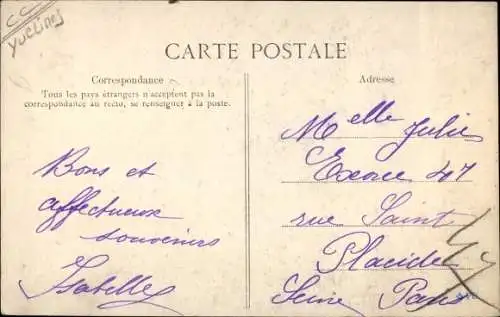 CC
YVELINES
CARTE POSTALE
Correspondance
Tous les pays étrangers n'acceptent pas la
correspondance au recto, se renseigner à la poste.
Bons et
affectueux
souvenirs
Isabelle
Adresse
Melle Julie
47
rue Saint
Placide
Seine Paris